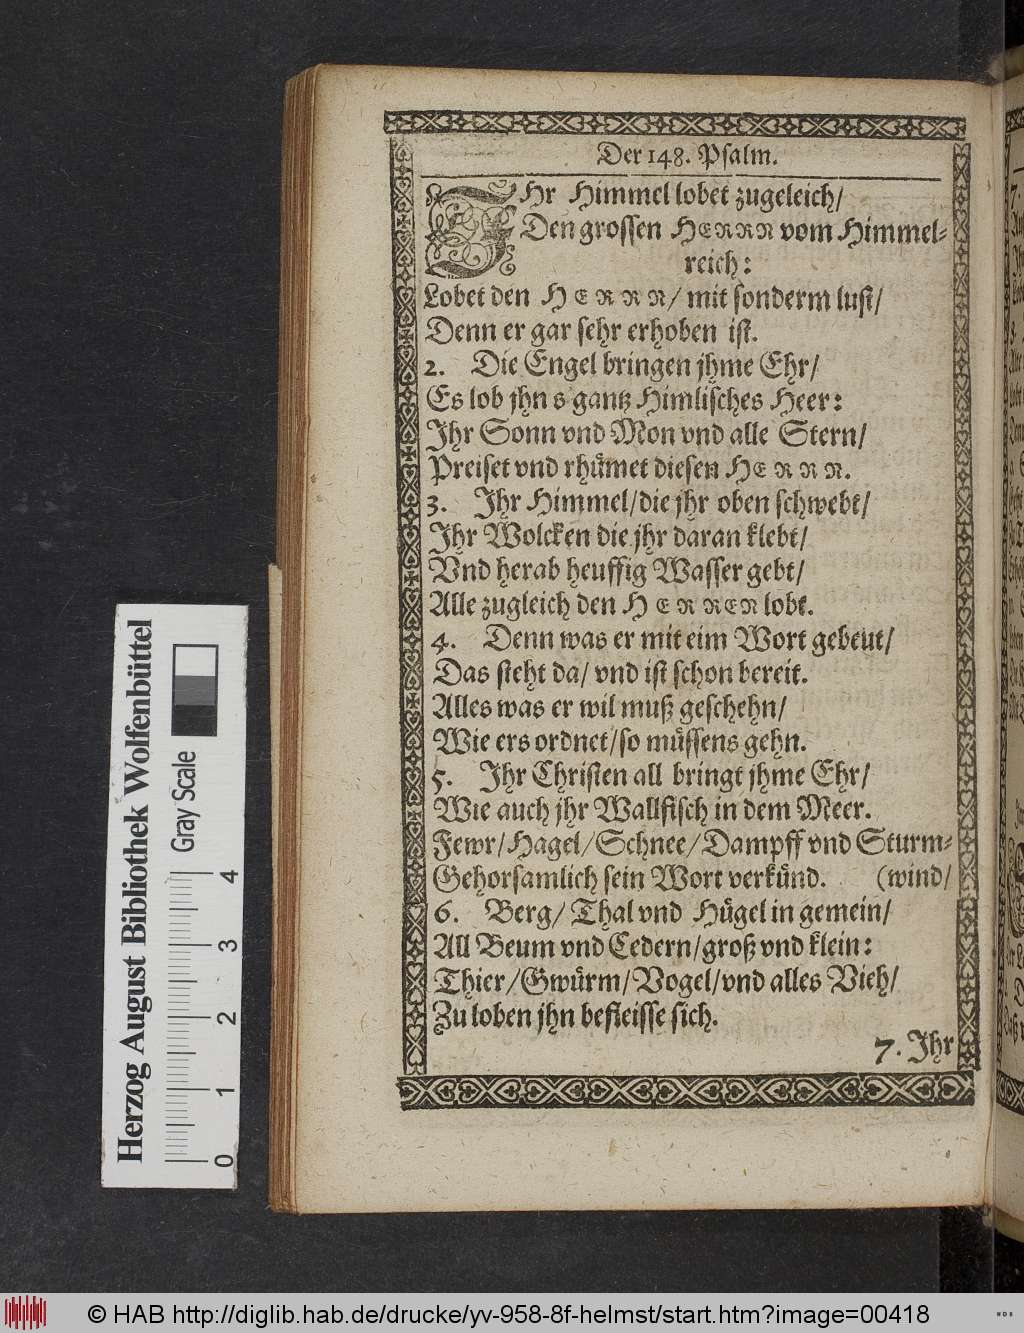 Der 148. Psalm.
IHr Himmel lobet zugeleich/
Den grossen HERRN vom Himmel-
reich:
Lobet den HERRN/ mit sonderm lust/
Denn er gar sehr erhoben ist.
2. Die Engel bringen jhme Ehr/
Es lob jhn s gantz Himlisches Heer:
Ihr Sonn vnd Mon vnd alle Stern/
Preiset vnd rhuͤmet diesen HERRN.
3. Ihr Himmel/die jhr oben schwebt/
Ihr Wolcken die jhr daran klebt/
Vnd herab heuffig Wasser gebt/
Alle zugleich den HERREN lobt.
4. Denn was er mit eim Wort gebeut/
Das steht da/ vnd ist schon bereit.
Alles was er wil muß geschehn/
Wie ers ordnet/so muͤssens gehn.
5. Ihr Christen all bringt jhme Ehr/
Wie auch jhr Wallfisch in dem Meer.
Fewr/Hagel/Schnee/Dampff vnd Sturm-
Gehorsamlich sein Wort verkuͤnd. (wind/
6. Berg/ Thal vnd Huͤgel in gemein/
All Beum vnd Cedern/groß vnd klein:
Thier/Gwuͤrm/Vogel/vnd alles Vieh/
Zu loben jhn befleisse sich.
7. Ihr
Herzog August Bibliothek Wolfenbüttel
Gray Scale
0 1 2 3 4
© HAB http://diglib.hab.de/drucke/yv-958-8f-helmst/start.htm?image=00418